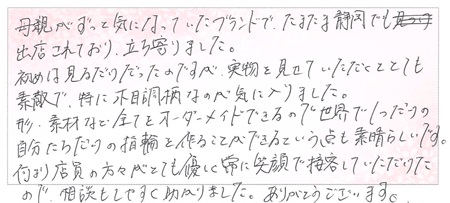 母親がずっと気になっていたブランドで、たまたま静岡でも
出店されており、立ち寄りました。
初めは見るだけだったのですが、実物を見せていただくととても
素敵で、特に木目調柄なのが気に入りました。
形、素材など全てをオーダーメイドできるので世界で1つだけの
自分たちだけの指輪を作ることができるという点も素晴らしいです。
何より店員の方々がとても優しく常に笑顔で接客していただけた
ので、相談もしやすく助かりました。ありがとうございます。